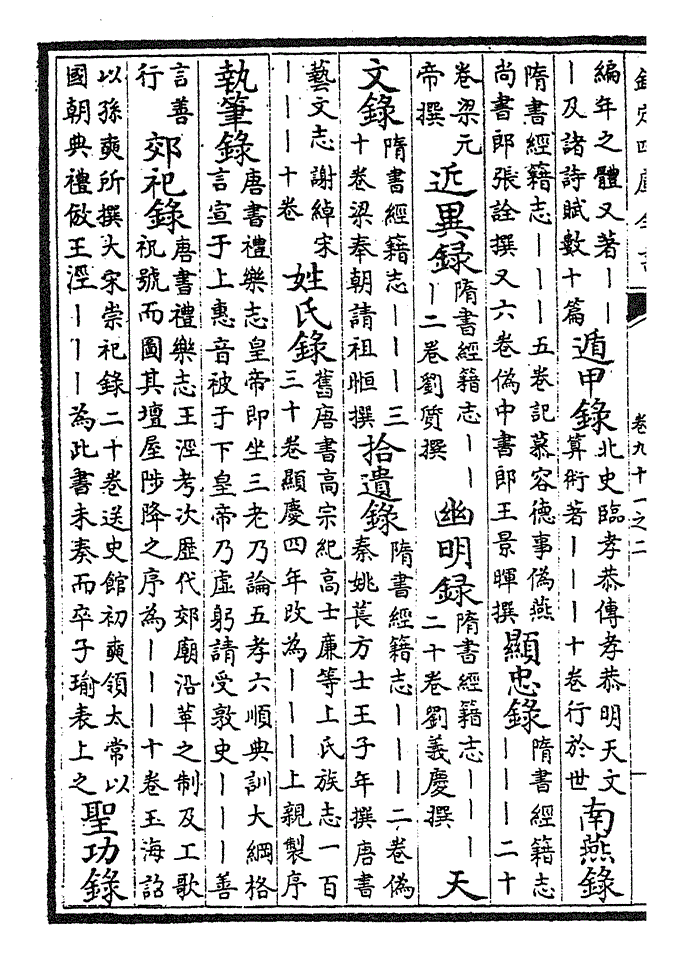 欽定四庫全書 卷九十一之二
編年之體又著——｜及諸詩賦數十篇 遁甲錄 北史臨孝恭傳孝恭明天文算術著｜｜｜十卷行於世 南燕錄
隋書經籍志｜｜｜五卷記慕容德事偽燕尚書郎張詮撰又六卷偽中書郎王景暉撰 顯忠錄 隋書經籍志｜｜｜二十
卷梁元帝撰 近異録 隋書經籍志｜｜｜二卷劉質撰 幽明録 隋書經籍志｜｜｜二十卷劉義慶撰 天
文錄 隋書經籍志｜｜｜三十卷梁奉朝請祖暅撰 拾遺錄 隋書經籍志｜｜｜二卷偽秦姚萇方士王子年撰唐書
藝文志謝綽宋｜｜｜｜十卷 姓氏錄 舊唐書高宗紀高士廉等上氏族志一百三十卷顯慶四年改為｜｜｜上親製序
執筆錄 唐書禮樂志皇帝即坐三老乃論五孝六順典訓大綱格言宣于上惠音被于下皇帝乃虛躬請受敦史｜｜｜善
言善行 郊祀錄 唐書禮樂志王涇考次歷代郊廟沿革之制及工歌祝號而圖其壇屋陟降之序為｜｜｜十卷玉海詔
以孫奭所撰大宋崇祀錄二十卷送史館初奭領太常以國朝典禮倣王涇｜｜｜為此書未奏而卒子瑜表上之 聖功錄